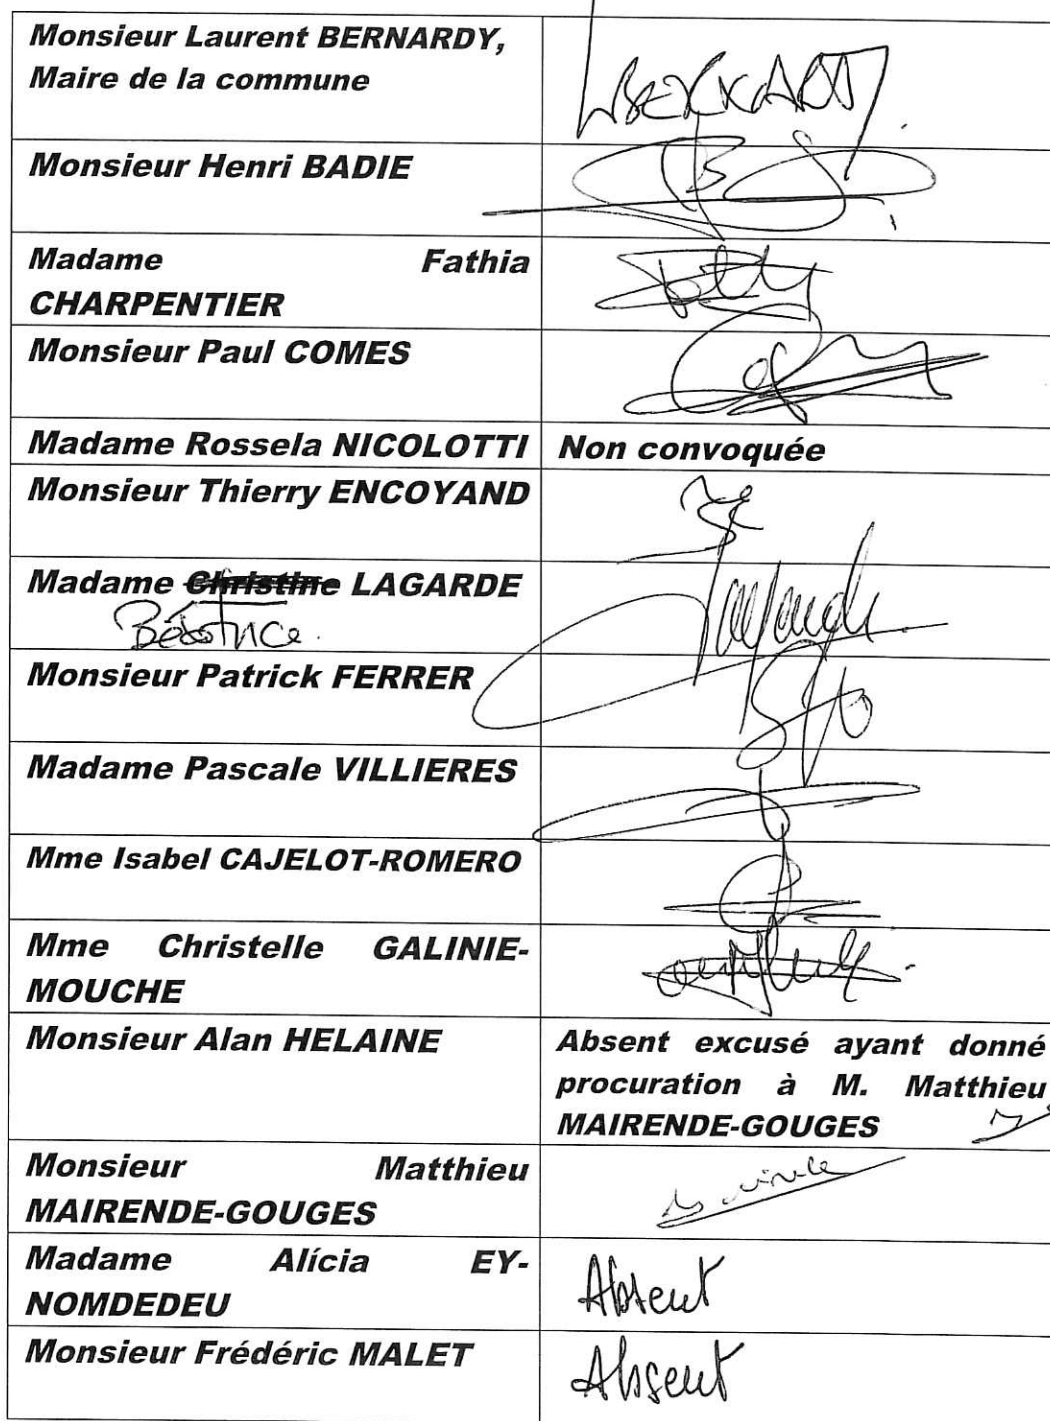 Monsieur Laurent BERNARDY,
Maire de la commune
Monsieur Henri BADIE
Madame Fathia
CHARPENTIER
Monsieur Paul COMES
Madame Rossela NICOLOTTI Non convoquée
Monsieur Thierry ENCOYAND
Madame Christine LAGARDE
Béatrice.
Monsieur Patrick FERRER
Madame Pascale VILLIERES
Mme Isabel CAJELOT-ROMERO
Mme Christelle GALINIE-
MOUCHE
Monsieur Alan HELAINE
Absent excusé ayant donné
procuration à M. Matthieu
MAIRENDE-GOUGES
Monsieur Matthieu
MAIRENDE-GOUGES
Madame Alícia EY-
NOMDEDEU
Absent
Monsieur Frédéric MALET
Absent